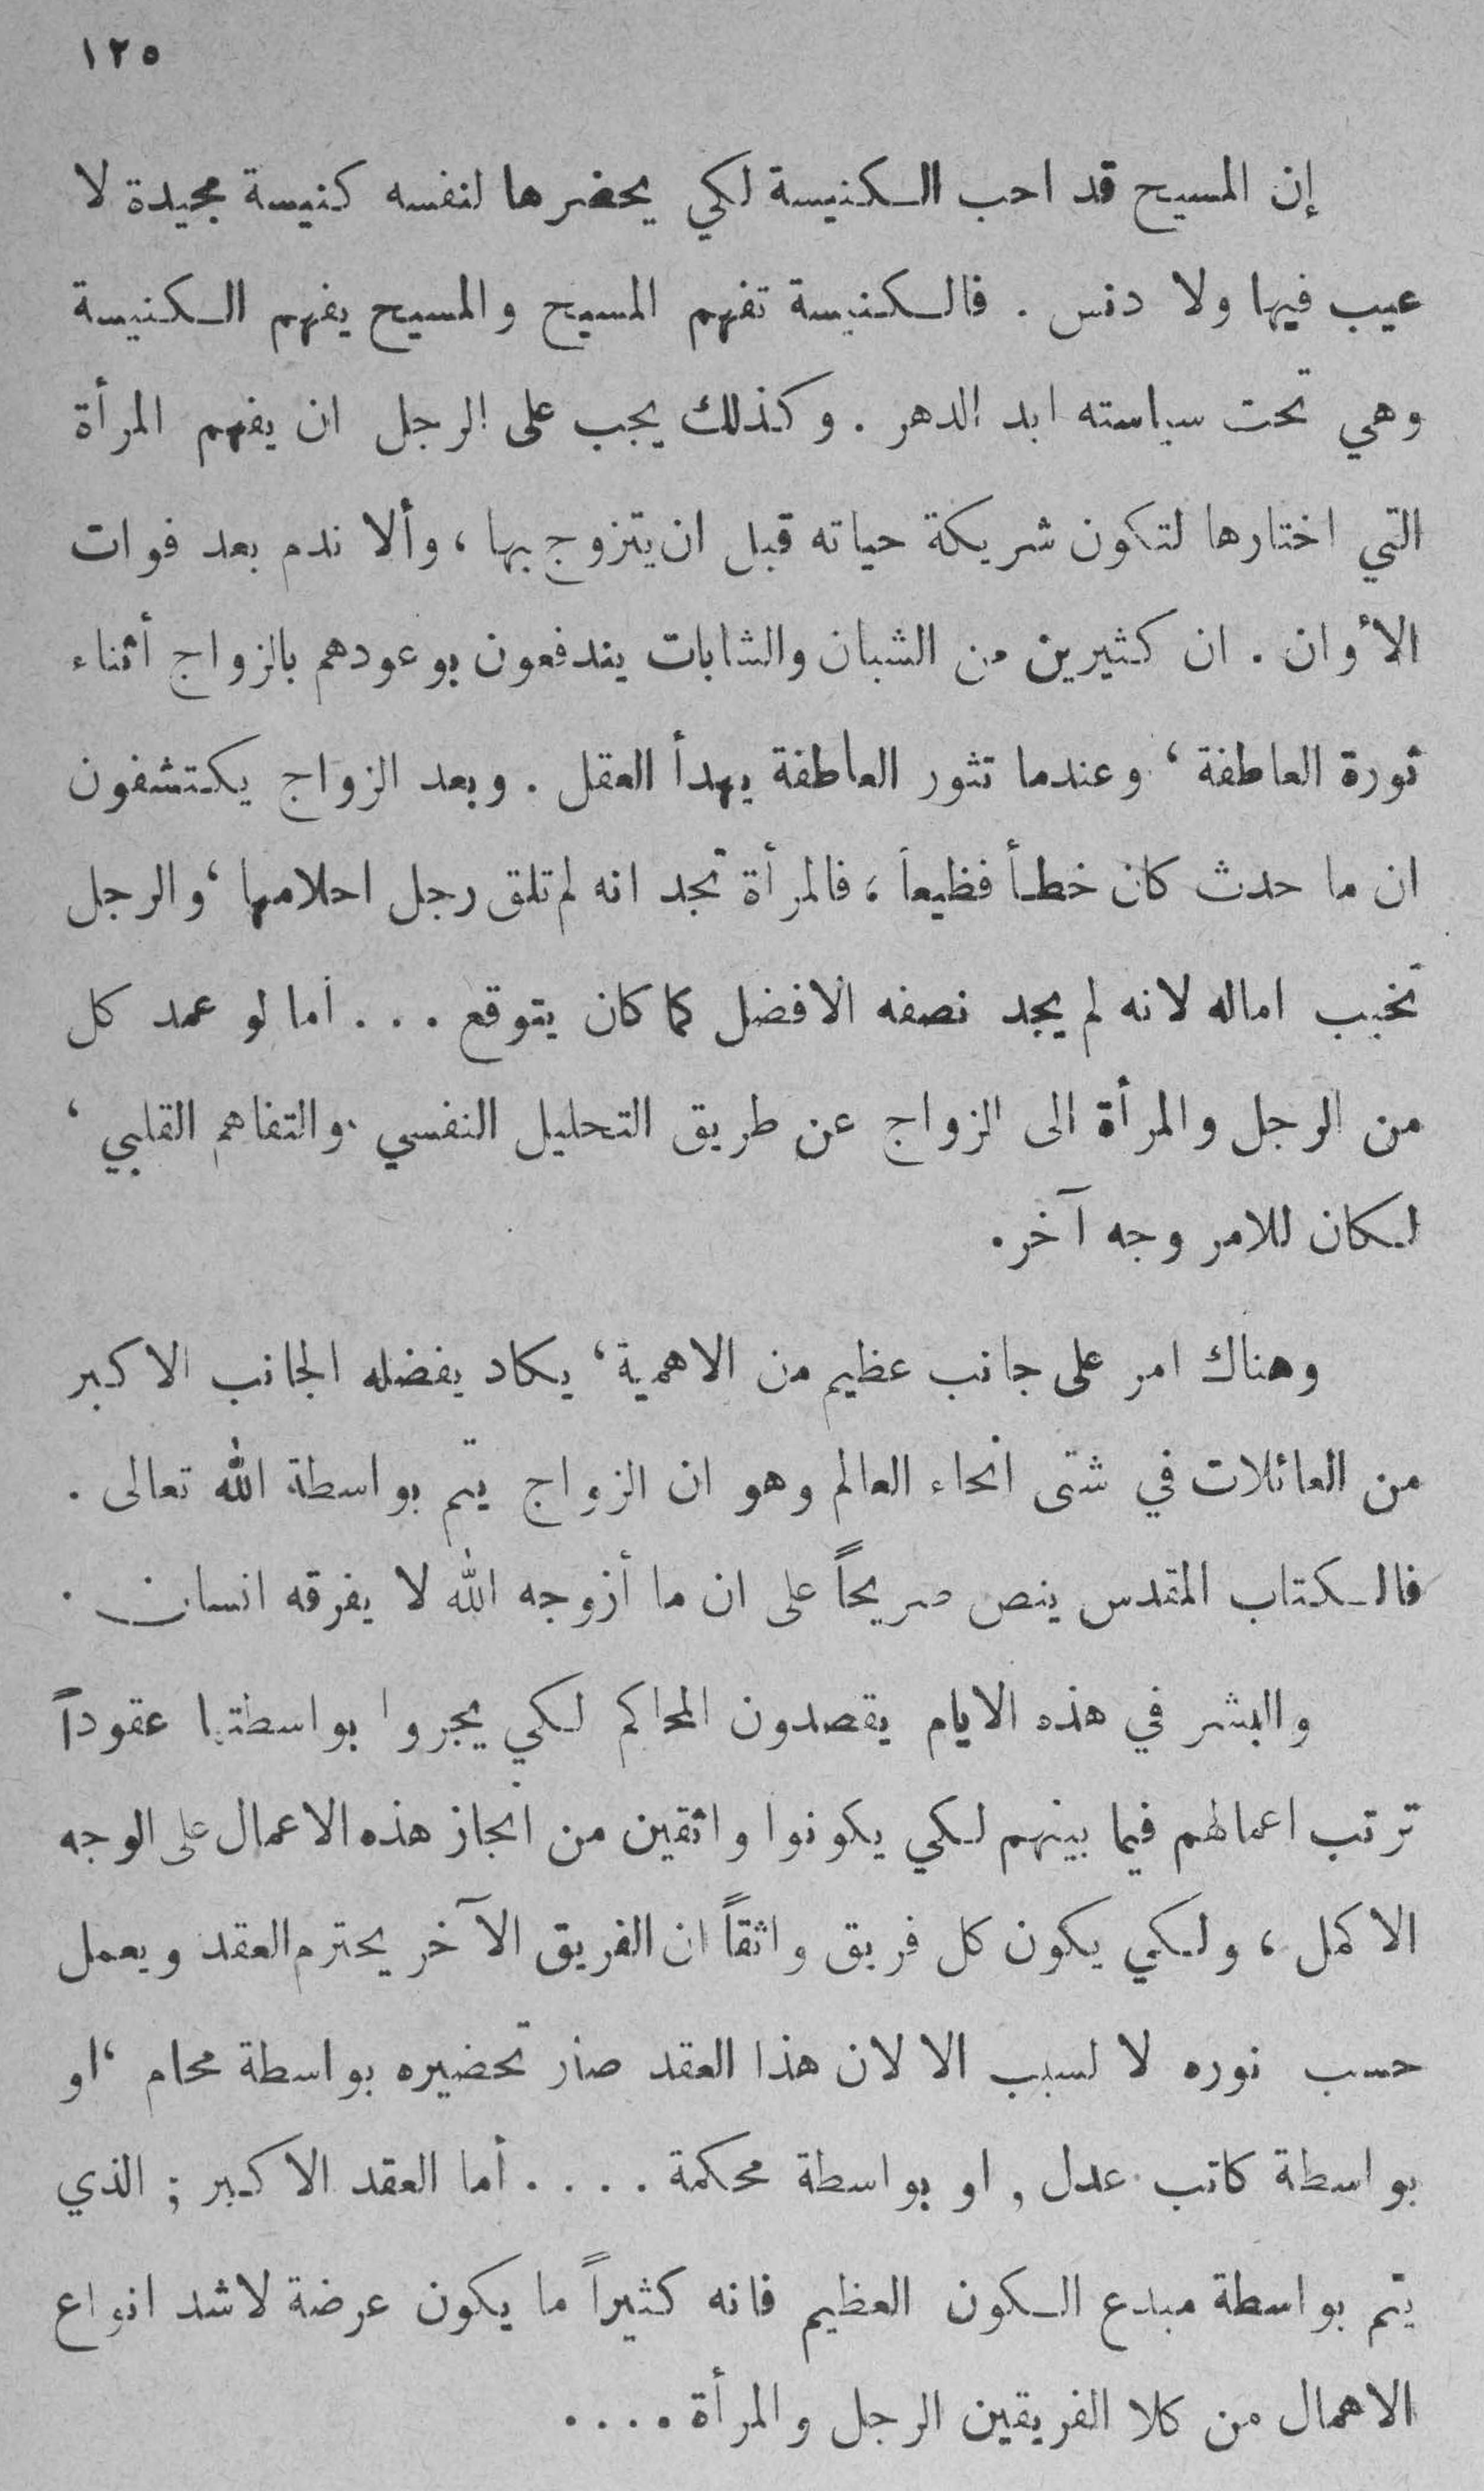 ١٢٥
إن المسيح قد احب الكنيسة لكي يحضرها لنفسه كنيسة مجيدة لا
عيب فيها ولا دنس . فالكنيسة تفهم المسيح والمسيح يفهم الكنيسة
وهي تحت سياسته ابد الدهر . وكذلك يجب على الرجل ان يفهم المرأة
التي اختارها لتكون شريكة حياته قبل ان يتزوج بها ، وألا ندم بعد فوات
الأوان . ان كثيرين من الشبان والشابات يندفعون بوعودهم بالزواج أثناء
ثورة العاطفة ، وعندما تثور العاطفة يهدأ العقل . وبعد الزواج يكتشفون
ان ما حدث كان خطأ فظيعاً ، فالمرأة تجد انه لم تلق رجل احلامها ، والرجل
تخيب اماله لانه لم يجد نصفه الافضل كما كان يتوقع . . . أما لو عمد كل
من الرجل والمرأة الى الزواج عن طريق التحليل النفسي والتفاهم القلبي ،
لكان للامر وجه آخر .
وهناك امر على جانب عظيم من الاهمية ، يكاد يفضله الجانب الاكبر
من العائلات في شتى انحاء العالم وهو ان الزواج يتم بواسطة الله تعالى .
فالكتاب المقدس ينص صريحاً على ان ما أزوجه الله لا يفرقه انسان .
والبشر في هذه الايام يقصدون المحاكم لكي يجروا بواسطتها عقوداً
ترتب اعمالهم فيما بينهم لكي يكونوا واثقين من انجاز هذه الاعمال على الوجه
الاكمل ، ولكي يكون كل فريق واثقاً ان الفريق الآخر يحترم العقد ويعمل
حسب نوره لا لسبب الا لان هذا العقد صار تحضيره بواسطة محام ، او
بواسطة كاتب عدل , او بواسطة محكمة . . . . أما العقد الاكبر ; الذي
يتم بواسطة مبدع الكون العظيم فانه كثيراً ما يكون عرضة لاشد انواع
الاهمال من كلا الفريقين الرجل والمرأة . . . .